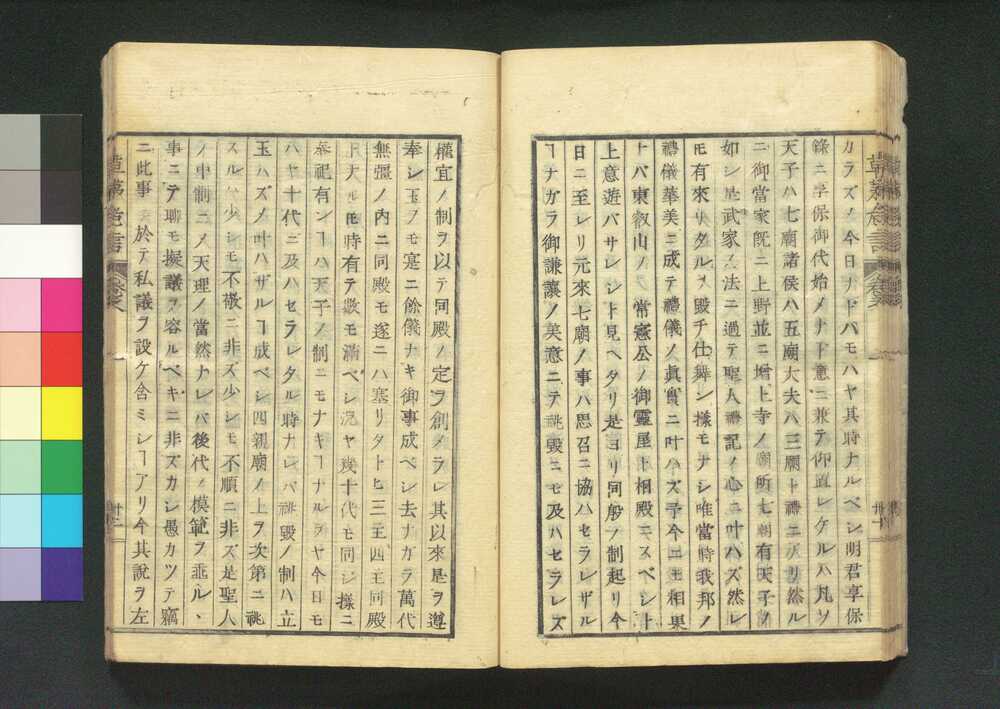 カラズメ今日ナドバモハヤ其時ナルベシ明君享保
錄ニ享保御代始メナド意ニ兼テ仰置レケルハ凡ソ
天子ハ七廟諸侯ハ五廟大夫ハ三廟ト禮ニアリ然ル
ニ御當家既ニ上野並ニ増上寺ノ廟所七廟有天子ノ
如シ是武家ノ法ニ過テ聖人禮記ノ心ニ叶ハズ然レ
モ有來リタルヲ毀チ仕舞ン樣モナシ唯當時我邦ノ
禮儀華美ニ成テ禮儀ノ眞實ニ叶ハズ予今ニモ相果
トバ東叡山ノ常憲公ノ御靈屋ト相殿ニスベシト
上意遊バサレシト見ヘタリ是ヨリ同殿ノ制起リ今
日ニ至レリ元來七廟ノ事ハ思召ニ協ハセラレザル
ヿナガラ御謙讓ノ美意ニテ祧毀ニモ及ハセラレズ
權宜ノ制ヲ以テ同殿ノ定ヲ創メラレ其以來是ヲ遵
奉シ玉フモ寔ニ餘儀ナキ御事成ベシ去ナガラ萬代
無彊ノ內ニ同殿モ遂ニハ塞リタトヒ三王四王同殿
下大ルモ時有テ數モ滿ベシ況ヤ幾十代モ同ジ樣ニ
奉祀有ンヿハ天子ノ制ニモナキヿナルヲヤ今日モ
ハヤ十代ニ及ハセラレタル時ナレバ祧毀ノ制ハ立
玉ハズメ叶ハザルヿ成ベシ四親廟ノ上ヲ次第ニ祧
スルハ少シモ不敬ニ非ズ少シモ不順ニ非ズ是聖人
ノ中制ニメ天理ノ當然ナレバ後代ノ模範ヲ垂ル、
事ニテ聊モ擬議ヲ容ルベキニ非ズカシ愚カツテ竊
ニ此事ニ於テ私議ヲ設ケ含ミシヿアリ今其說ヲ左
草茅危言